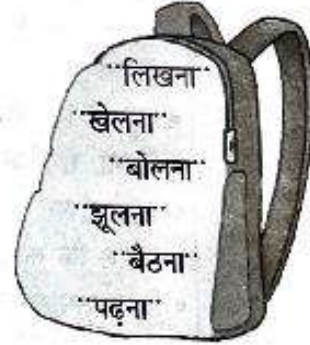 ¨लिखना¨
¨खेलना¨
¨बोलना¨
¨झूलना¨
¨बैठना¨
¨पढ़ना¨